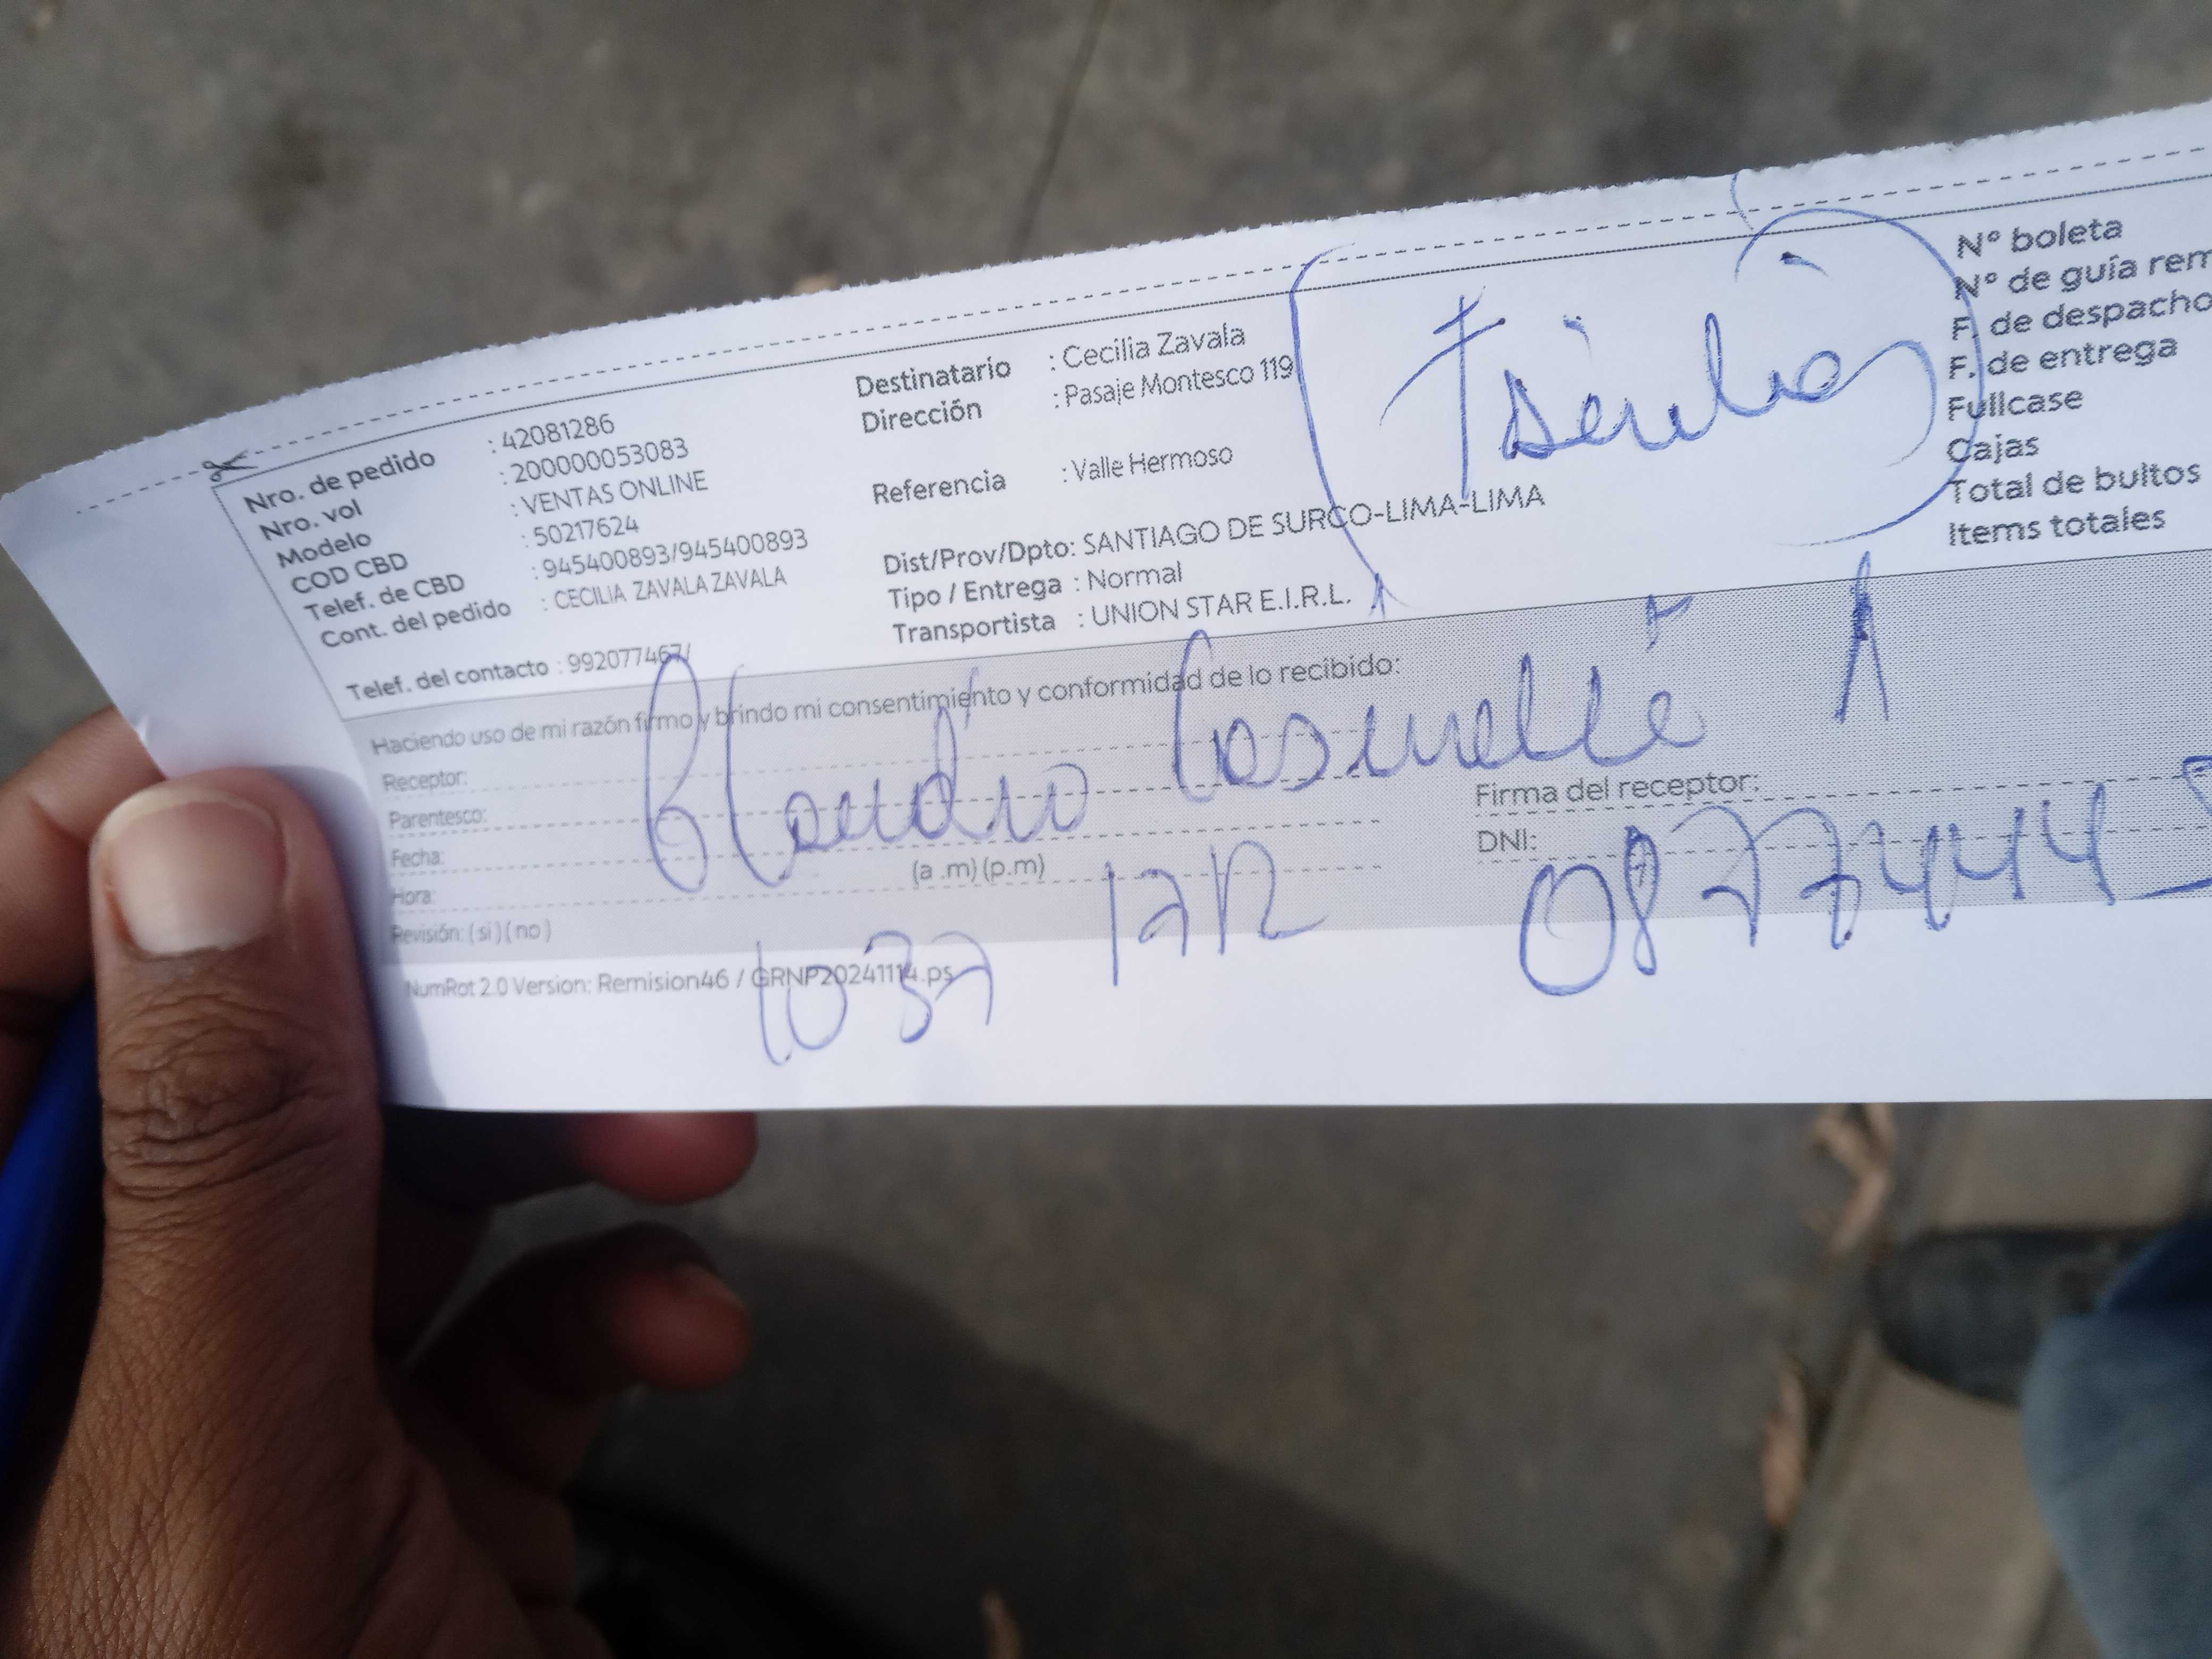 Nro. de pedido : 42081286
Nro. vol : 200000053083
Modelo : VENTAS ONLINE
COD CBD : 50217624
Telef. de CBD : 945400893/945400893
Cont. del pedido : CECILIA ZAVALA ZAVALA
Telef. del contacto : 992077467/
Destinatario : Cecilia Zavala
Dirección : Pasaje Montesco 119
Referencia : Valle Hermoso
Dist/Prov/Dpto: SANTIAGO DE SURCO-LIMA-LIMA
Tipo / Entrega : Normal
Transportista : UNION STAR E.I.R.L.
N° boleta
N° de guía rem
F. de despacho
F. de entrega
Fullcase
Cajas
Total de bultos
Items totales
Haciendo uso de mi razón firmo y brindo mi consentimiento y conformidad de lo recibido:
Receptor:
Parentesco:
Fecha:
Hora: (a .m) (p.m)
Revisión: ( si ) ( no )
Claudio
Firma del receptor:
DNI: 08774445
1037
NumRot 2.0 Version: Remision46 / GRNP20241114.ps